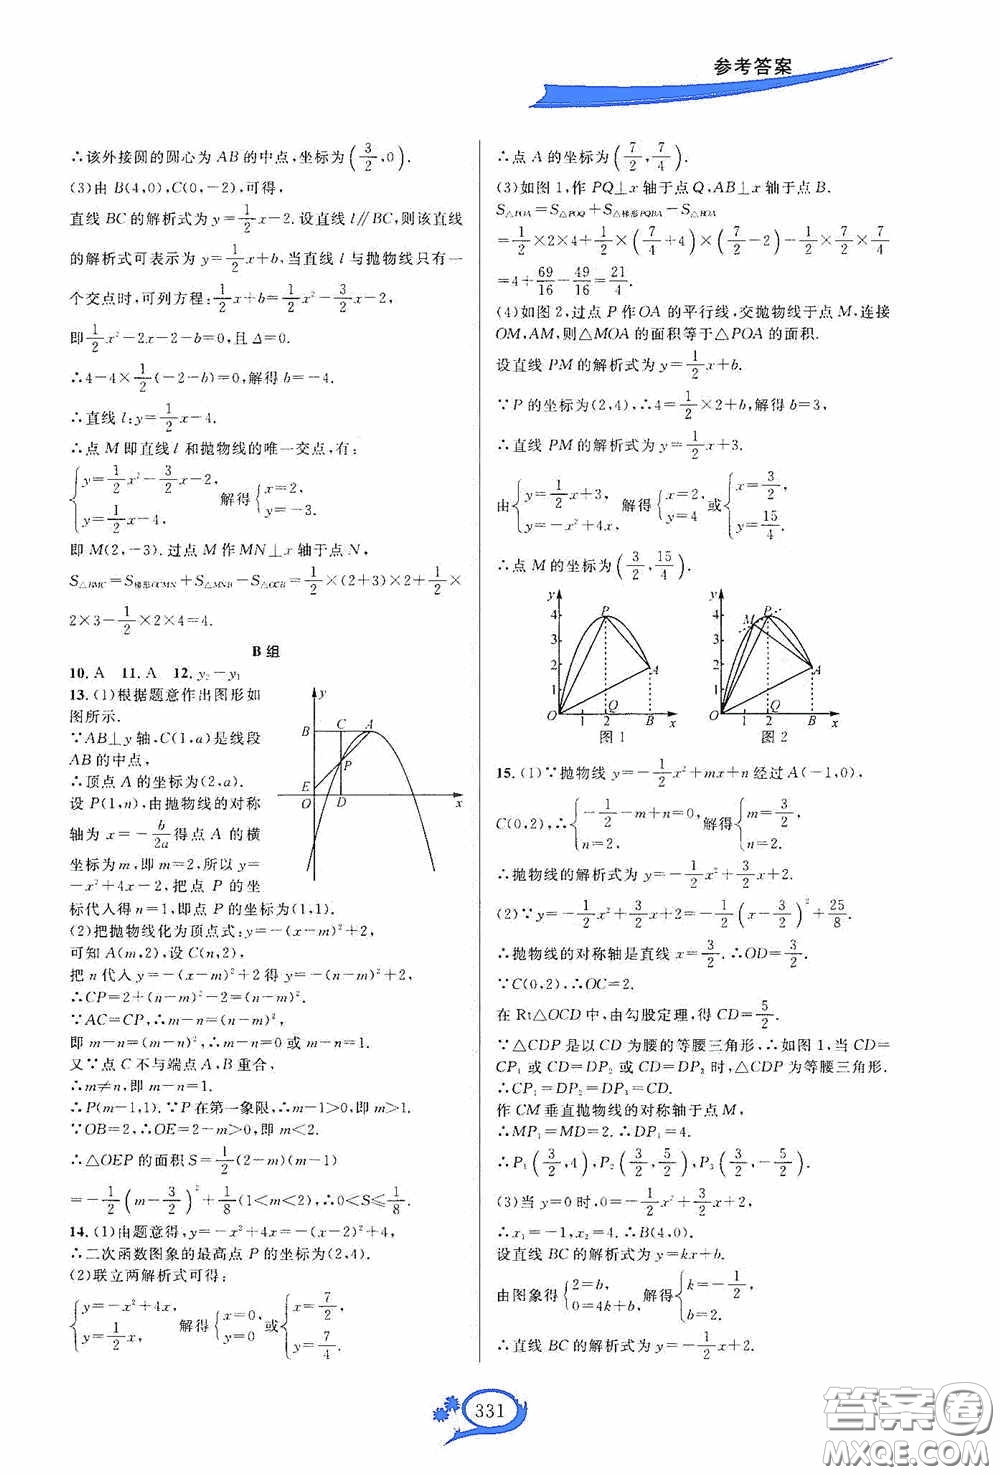 参考答案
∴该外接圆的圆心为 AB 的中点,坐标为(3/2,0).
(3)由 B(4,0),C(0,-2),可得,
直线 BC 的解析式为 y=1/2x-2. 设直线 l∥BC,则该直线
的解析式可表示为 y=1/2x+b,当直线 l 与抛物线只有一
个交点时,可列方程:1/2x+b=1/2x²-3/2x-2,
即1/2x²-2x-2-b=0,且 Δ=0.
∴4-4×1/2(-2-b)=0,解得 b=-4.
∴直线 l:y=1/2x-4.
∴点 M 即直线 l 和抛物线的唯一交点,有:
{y=1/2x²-3/2x-2, y=1/2x-4, 解得{x=2, y=-3.
即 M(2,-3). 过点 M 作 MN⊥x 轴于点 N,
S△BMC=S梯形OCMN+S△MNB-S△OCB=1/2×(2+3)×2+1/2×
2×3-1/2×2×4=4.
B 组
10. A 11. A 12. y₂-y₁
13. (1)根据题意作出图形如
图所示.
∵AB⊥y 轴,C(1,a)是线段
AB 的中点,
∴顶点 A 的坐标为(2,a).
设 P(1,n),由抛物线的对称
轴为 x=-b/2a得点 A 的横
坐标为 m,即 m=2,所以 y=
-x²+4x-2,把点 P 的坐
标代入得 n=1,即点 P 的坐标为(1,1).
y
B C A
P
E
O D x
(2)把抛物线化为顶点式:y=-(x-m)²+2,
可知 A(m,2),设 C(n,2),
把 n 代入 y=-(x-m)²+2 得 y=-(n-m)²+2,
∴CP=2+(n-m)²-2=(n-m)²,
∵AC=CP,∴m-n=(n-m)²,
即 m-n=(m-n)²,∴m-n=0 或 m-n=1.
又∵点 C 不与端点 A、B 重合,
∴m≠n,即 m-n=1.
∴P(m-1,1). ∵P 在第一象限,∴m-1>0,即 m>1.
∵OB=2,∴OE=2-m>0,即 m<2.
∴△OEP 的面积 S=1/2(2-m)(m-1)
=-1/2(m-3/2)²+1/8(1<m<2),∴0<S≤1/8.
14. (1)由题意得,y=-x²+4x=-(x-2)²+4,
∴二次函数图象的最高点 P 的坐标为(2,4).
(2)联立两解析式可得:
{y=-x²+4x, y=1/2x, 解得{x=0, y=0 或{x=7/2, y=7/4.
∴点 A 的坐标为(7/2,7/4).
(3)如图 1,作 PQ⊥x 轴于点 Q,AB⊥x 轴于点 B.
S△POA=S△POQ+S梯形PQBA-S△BOA
=1/2×2×4+1/2×(7/4+4)×(7/2-2)-1/2×7/2×7/4
=4+69/16-49/16=21/4.
(4)如图 2,过点 P 作 OA 的平行线,交抛物线于点 M,连接
OM,AM,则△MOA 的面积等于△POA 的面积.
设直线 PM 的解析式为 y=1/2x+b.
∵P 的坐标为(2,4),∴4=1/2×2+b,解得 b=3,
∴直线 PM 的解析式为 y=1/2x+3.
由{y=1/2x+3, y=-x²+4x, 解得{x=2, y=4 或{x=3/2, y=15/4.
∴点 M 的坐标为(3/2,15/4).
y 4 3 2 1 O 1 2 P A Q B x
图 1
y 4 3 2 1 O 1 2 M P A Q B x
图 2
15. (1)∵抛物线 y=-1/2x²+mx+n 经过 A(-1,0),
C(0,2),∴{-1/2-m+n=0, n=2, 解得{m=3/2, n=2.
∴抛物线的解析式为 y=-1/2x²+3/2x+2.
(2)∵y=-1/2x²+3/2x+2=-1/2(x-3/2)²+25/8,
∴抛物线的对称轴是直线 x=3/2. ∴OD=3/2.
∵C(0,2),∴OC=2.
在 Rt△OCD 中,由勾股定理,得 CD=5/2.
∵△CDP 是以 CD 为腰的等腰三角形,∴如图 1,当 CD=
CP₁ 或 CD=DP₂ 或 CD=DP₃ 时,△CDP 为等腰三角形.
∴CP₁=DP₂=DP₃=CD.
作 CM 垂直抛物线的对称轴于点 M,
∴MP₁=MD=2. ∴DP₁=4.
∴P₁(3/2,4),P₂(3/2,5/2),P₃(3/2,-5/2).
(3)当 y=0 时,0=-1/2x²+3/2x+2,
∴x₁=-1,x₂=4. ∴B(4,0).
设直线 BC 的解析式为 y=kx+b.
由图象得{2=b, 0=4k+b, 解得{k=-1/2, b=2.
∴直线 BC 的解析式为 y=-1/2x+2.
331
答案圈
MXQE.COM